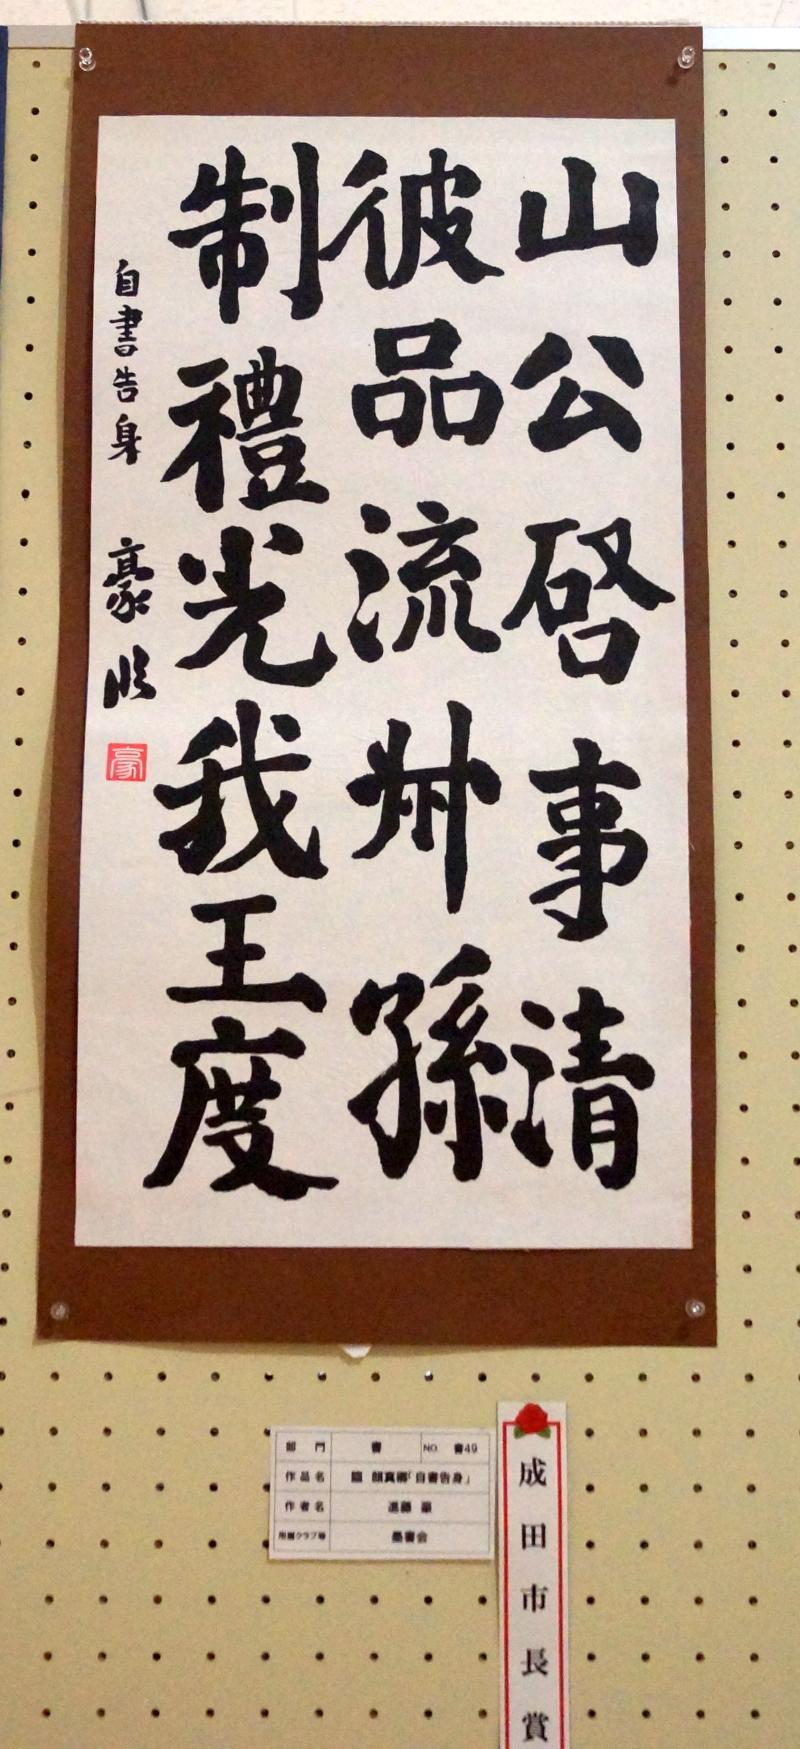 山公啓事清
彼品流叔孫
制禮光我王度
自書告身 豪臨
豪
部門 書 NO. 書49
作品名 臨 顔真卿「自書告身」
作者名 進藤 豪
所属クラブ等 墨書会
成田市長賞